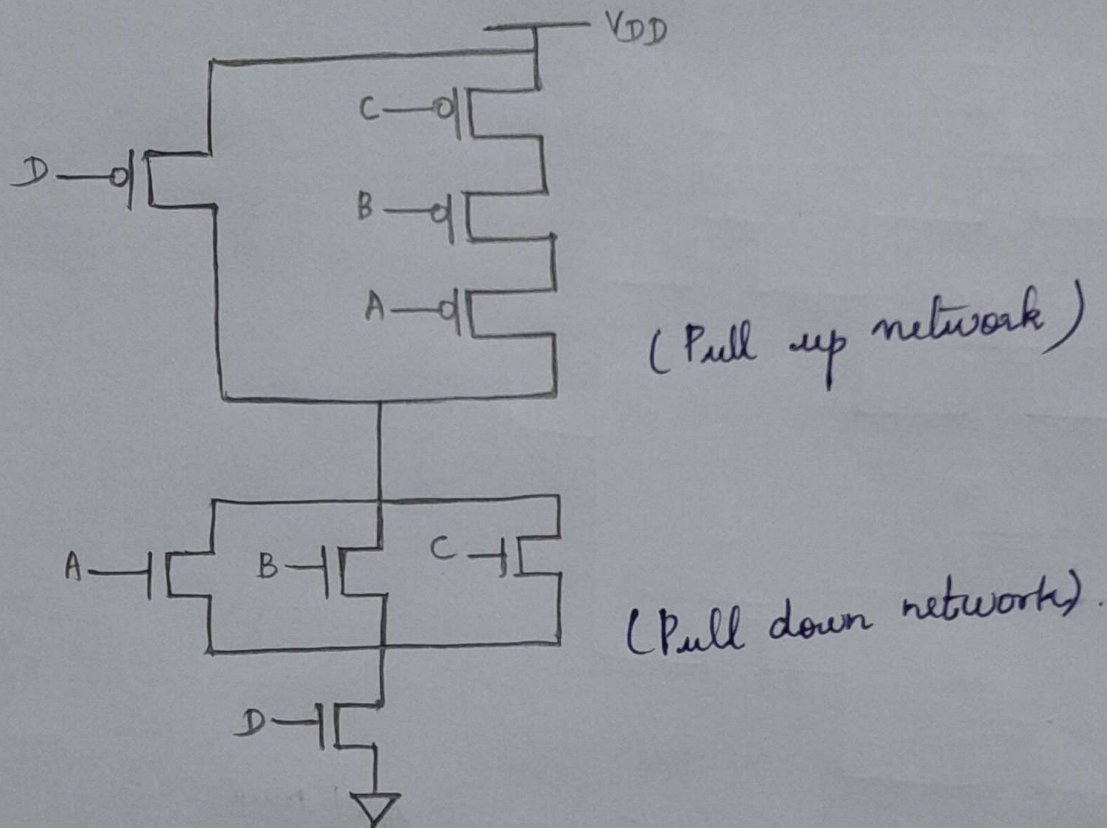 VDD
C
D
B
A
(Pull up network)
A
B
C
(Pull down network).
D